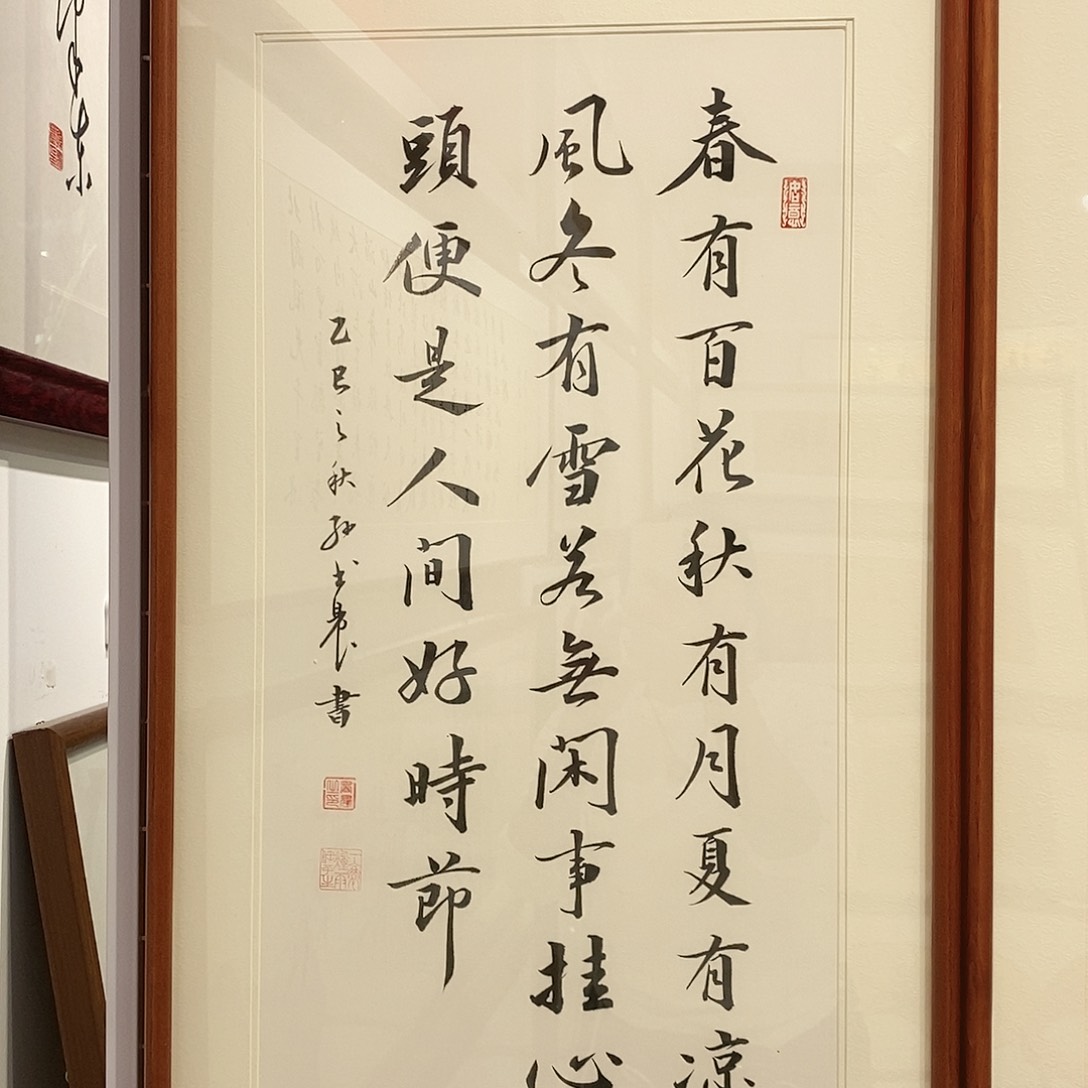 春有百花秋有月夏有涼
風冬有雪若無閑事挂心
頭便是人间好時節
乙巳之秋
書